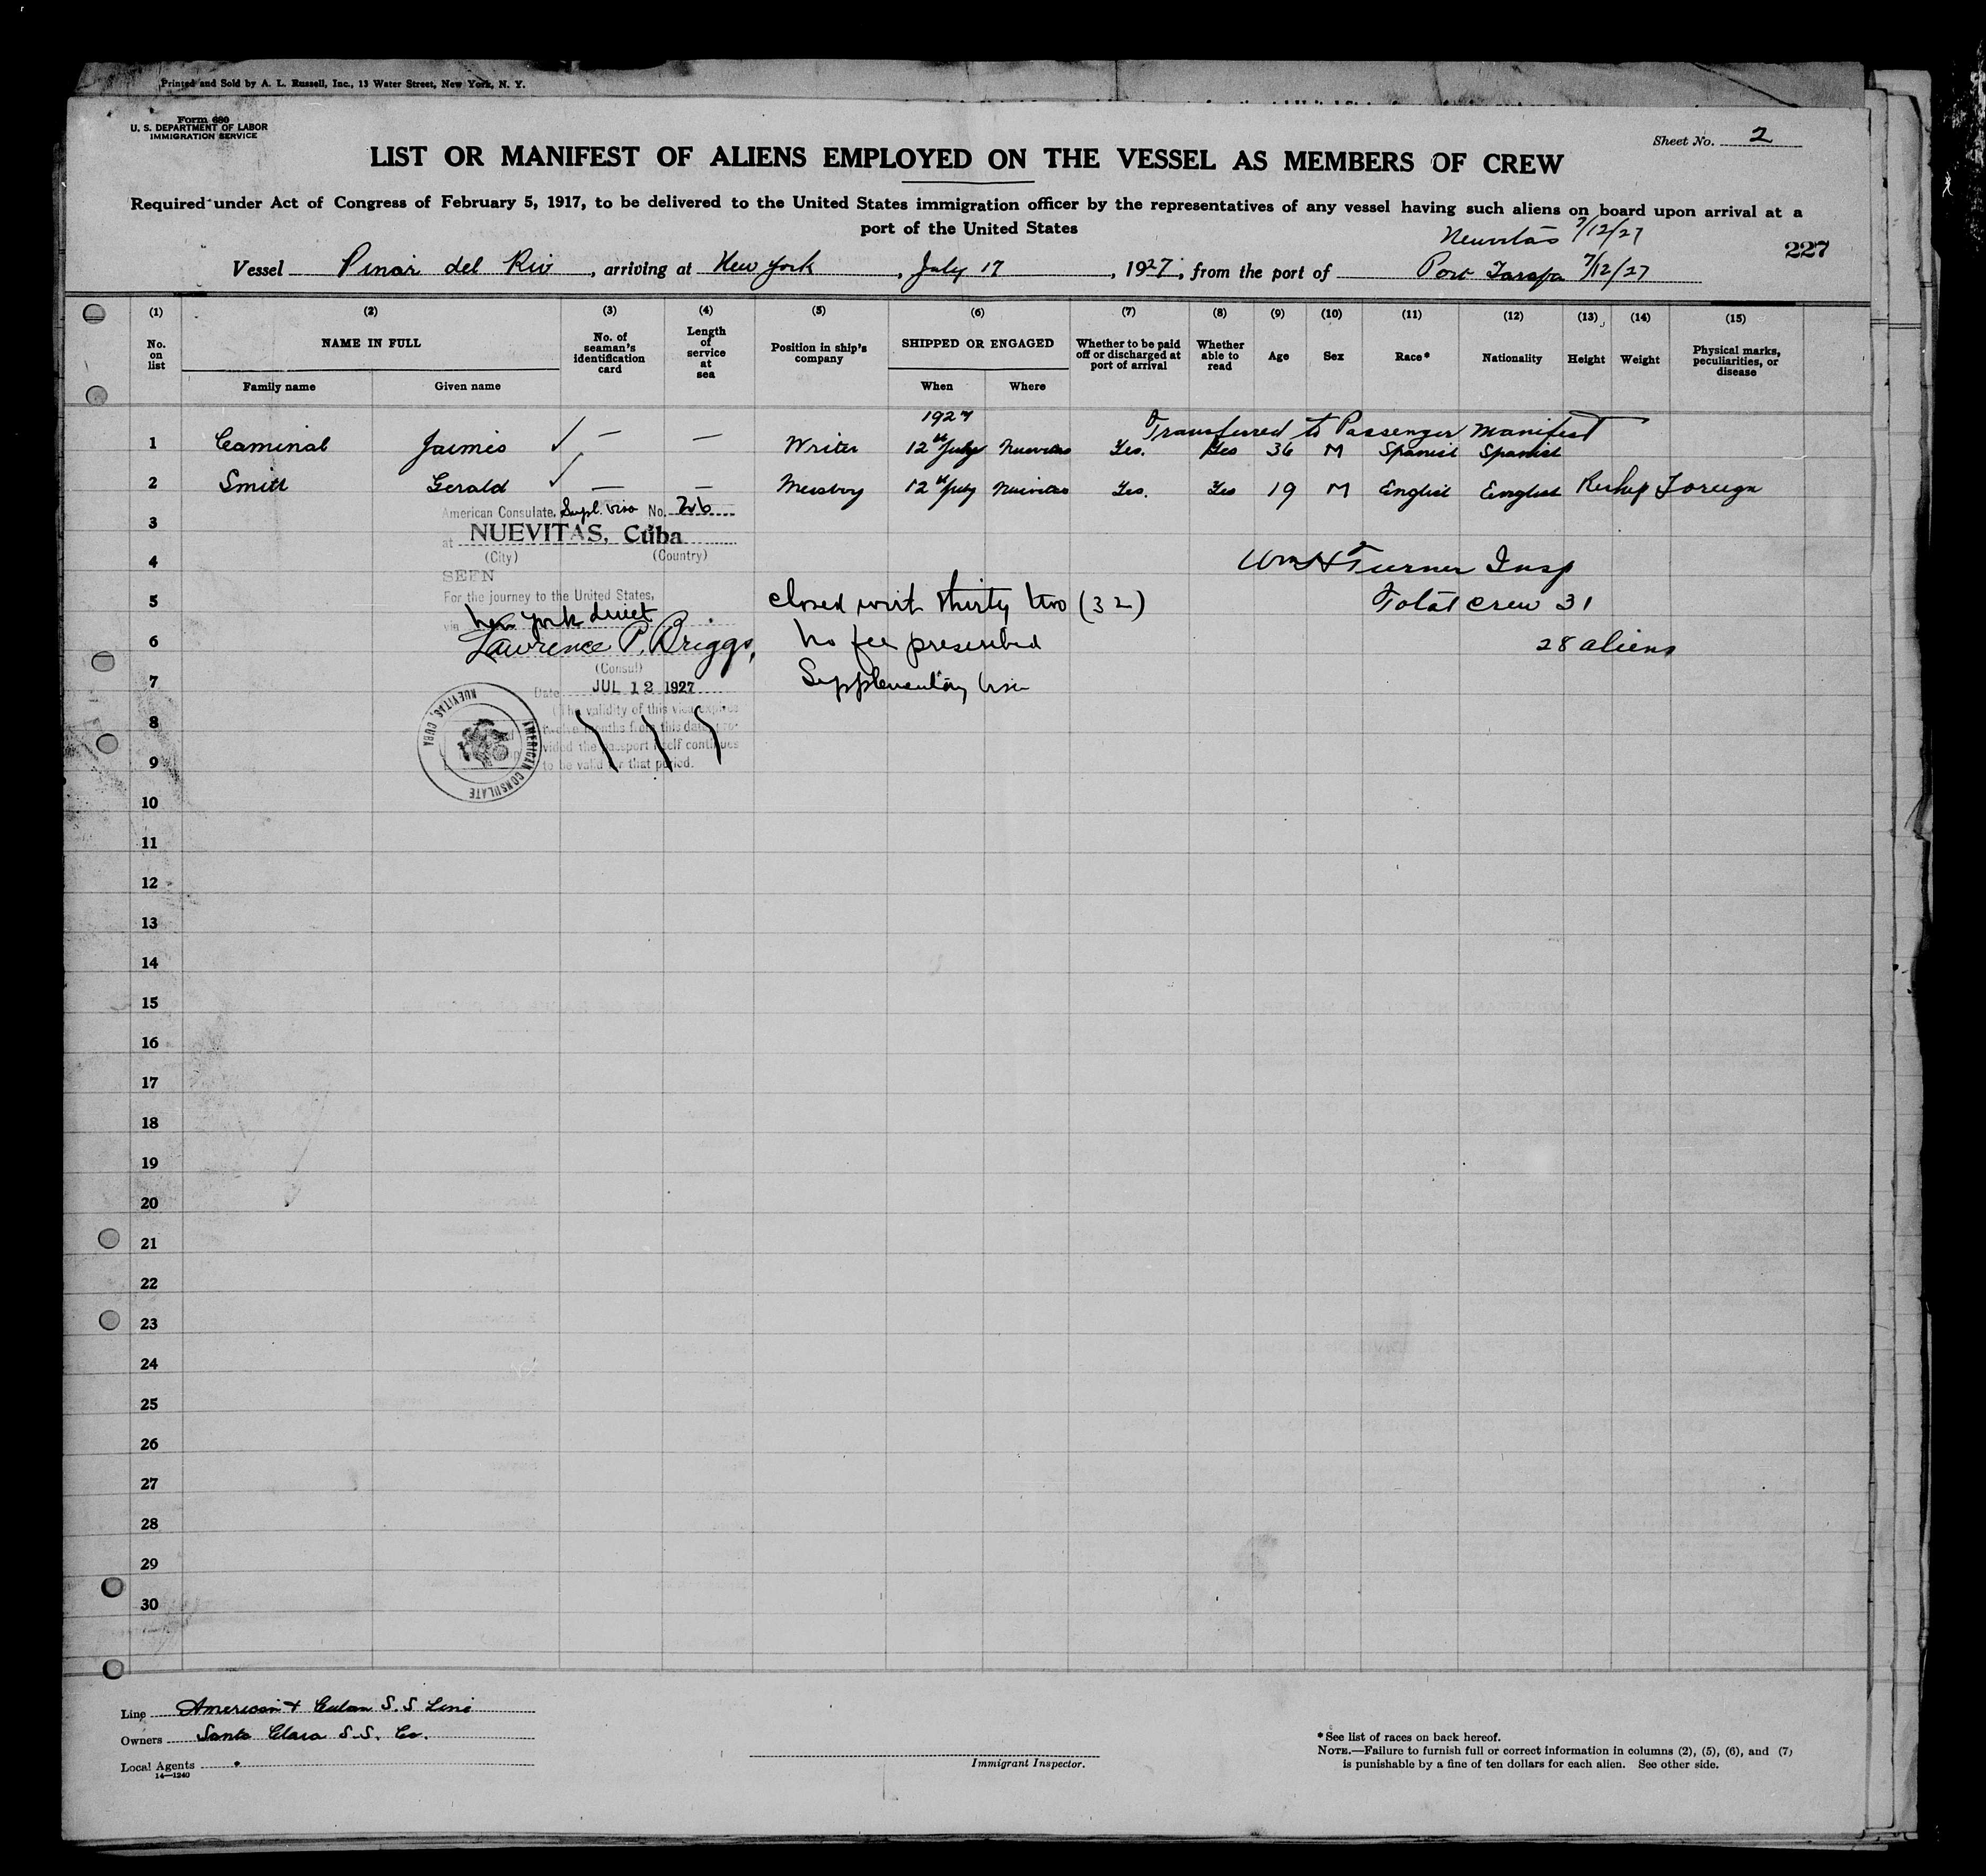 Printed and Sold by A. L. Russell, Inc., 13 Water Street, New York, N. Y.
Form 680
U. S. DEPARTMENT OF LABOR
IMMIGRATION SERVICE
Sheet No. 2
LIST OR MANIFEST OF ALIENS EMPLOYED ON THE VESSEL AS MEMBERS OF CREW
Required under Act of Congress of February 5, 1917, to be delivered to the United States immigration officer by the representatives of any vessel having such aliens on board upon arrival at a
port of the United States
Nuevitas 7/12/27
227
Vessel Pinar del Rio, arriving at New York, July 17, 1927, from the port of Port Tarafa 7/12/27
(1) (2) (3) (4) (5) (6) (7) (8) (9) (10) (11) (12) (13) (14) (15)
No. on list NAME IN FULL No. of seaman's identification card Length of service at sea Position in ship's company SHIPPED OR ENGAGED Whether to be paid off or discharged at port of arrival Whether able to read Age Sex Race* Nationality Height Weight Physical marks, peculiarities, or disease
Family name Given name When Where
1927 Transferred to Passenger Manifest
1 Caminal Jaimes ✓ — — Writer 12th July Nuevitas Yes. Yes 36 M Spanish Spanish
2 Smith Gerald ✓ — — Messboy 12th July Nuevitas Yes. Yes 19 M English English Reship Foreign
American Consulate, Supl. Visa No.
3
at NUEVITAS, Cuba
(City) (Country)
4 Wm H Turner Insp
SEEN
For the journey to the United States,
5 closed with thirty two (32) Total crew 31
via New York direct
6 Lawrence P. Briggs, No fee prescribed 28 aliens
(Consul)
7 Date JUL 12 1927 Supplementary Visa
(The validity of this visa expires
8 twelve months from this date pro-
vided the passport itself continues
9 to be valid for that period.
AMERICAN CONSULATE
NUEVITAS, CUBA
10
11
12
13
14
15
16
17
18
19
20
21
22
23
24
25
26
27
28
29
30
Line American & Cuban S.S Line
Owners Santa Clara S.S. Co.
Local Agents
14—1240
Immigrant Inspector.
*See list of races on back hereof.
NOTE.—Failure to furnish full or correct information in columns (2), (5), (6), and (7)
is punishable by a fine of ten dollars for each alien. See other side.